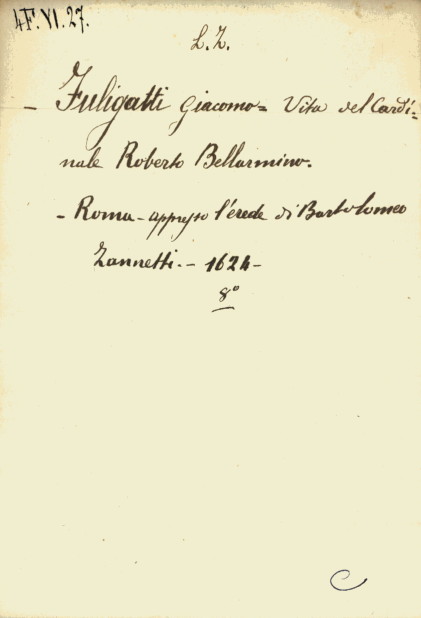 4F.VI.27.
L.Z.
- Fuligatti Giacomo= Vita del Cardi=
nale Roberto Bellarmino.
- Roma - appresso l'erede di Bartolomeo
Zannetti. - 1624 -
8°
C